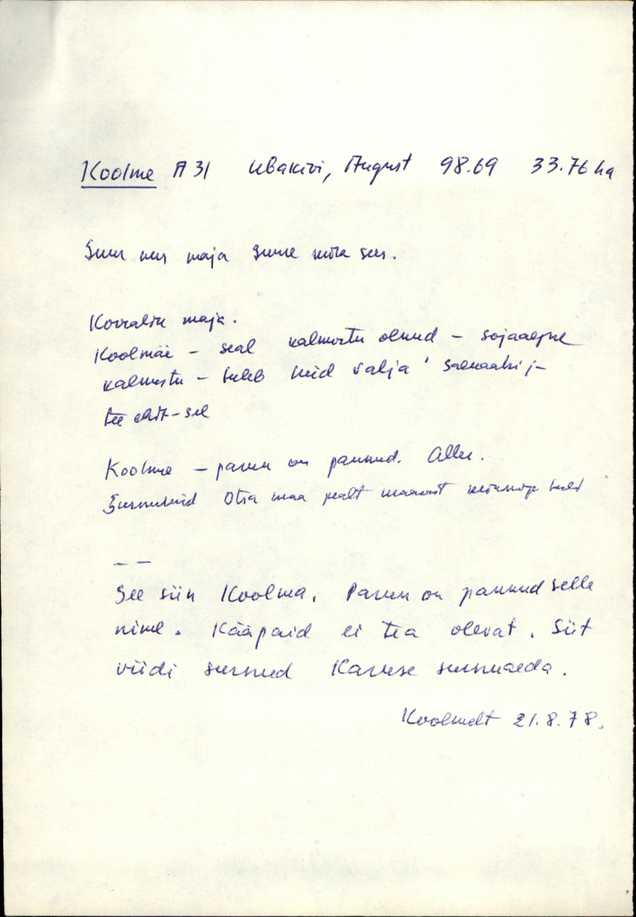 Koolme A 31 Ubakivi, August 98.69 33.76 ha
Suur uus maja
Kooraliku maja.
Koolmäe – seal kalmistu olnud – sõjaaegne
kalmistu – tuleb luid välja
tee ehit-sel
Koolme – parun on pannud. Allu.
Surnuluid Otsa maa pealt
See siin Koolma. Parun on pannud selle
nime. Kääpaid ei tea olevat. Siit
viidi surnud Karuse surnuaeda.
Koolmelt 21.8.78.